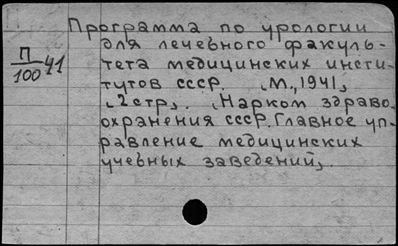 Программа по урологии
для лечебного факуль-
П
100 41
тета медицинских инсти-
тутов СССР. [М., 1941],
[2стр]. [Нарком здраво-
охранения СССР. Главное уп-
равление медицинских
учебных заведений].